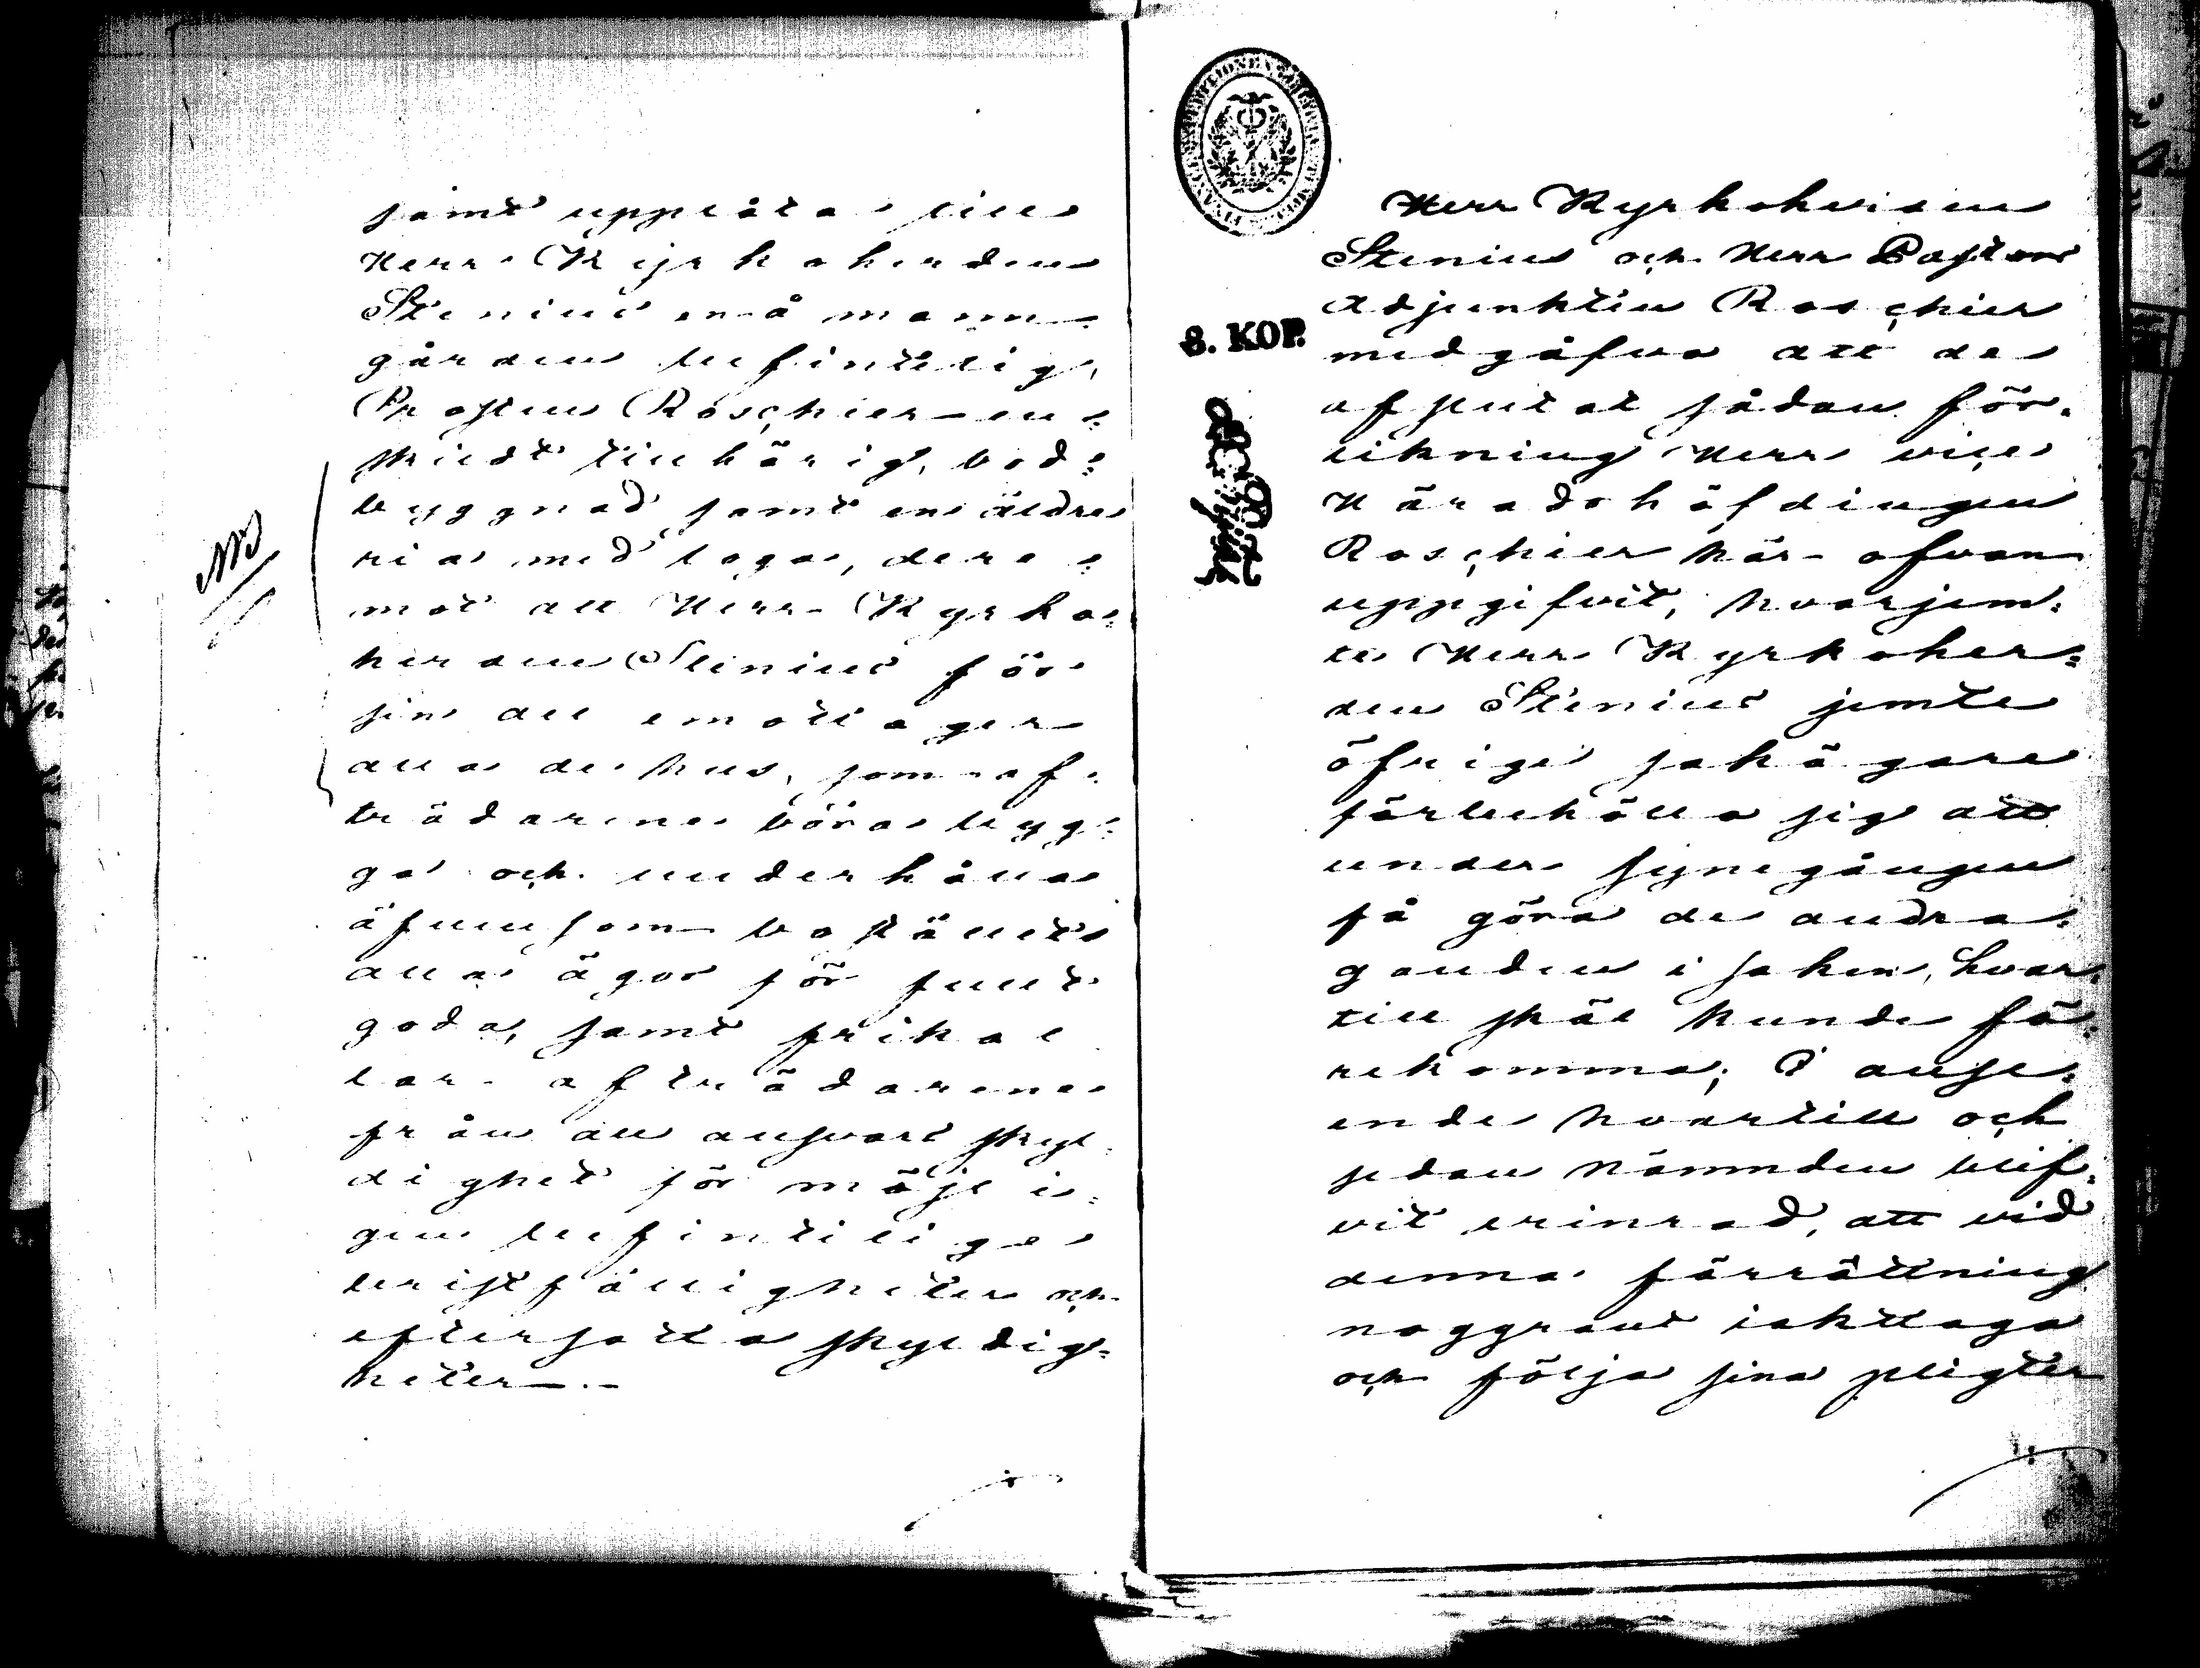 samt upplåta till
Herr Kyrkoherden
Stenius en å mann-
gården befintelig,
Prosten Roschier en-
skildt tillhörig, bod-
byggnad samt en äldre
ria med loga, dere-
mot att Herr Kyrko-
herden Stenius för
sin del emottager
alla de hus, som af-
trädarene böra byg-
ga och underhålla
äfvensom boställets
alla ägor för fullt
goda, samt frikal-
lar afträdarene
från all ansvars skyl-
dighet för möjli-
gen befinteliga
bristfälligheter och
eftersatta skyldig-
heter.-
NB
8. KOP.
Herr Kyrkoherden
Stenius och Herr Pastors
Adjunkten Roschier
medgåfvo att de
afslutat sådan för-
likning Herr vice
Häradshöfdingen
Roschier här ofvan
uppgifvit, hvarjem-
te Herr Kyrkoher-
den Stenius jemte
öfrige sakägare
förbehöllo sig att
under synegången
få göra de andra-
ganden i saken, hvar-
till skäl kunde fö-
rekomma; I anse-
ende hvartill och
sedan nämnden blif-
vit erinrad, att vid
denna förrättning
noggrant iakttaga
och följa sina pligter